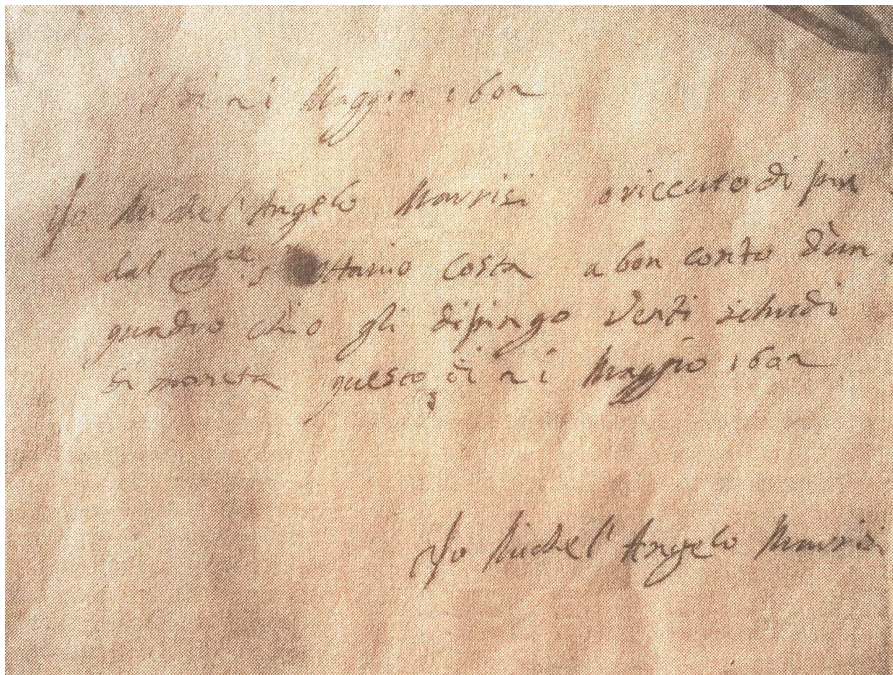 il di 21 Maggio 1602
Io Michel'Angelo Marrisi o riccuto di piu
dal Ill.re s Ottavio Costa a bon conto d'un
quadro ch'io gli dipingo venti schudi
di moneta questo di 21 Maggio 1602
Io Michel'Angelo Marrisi